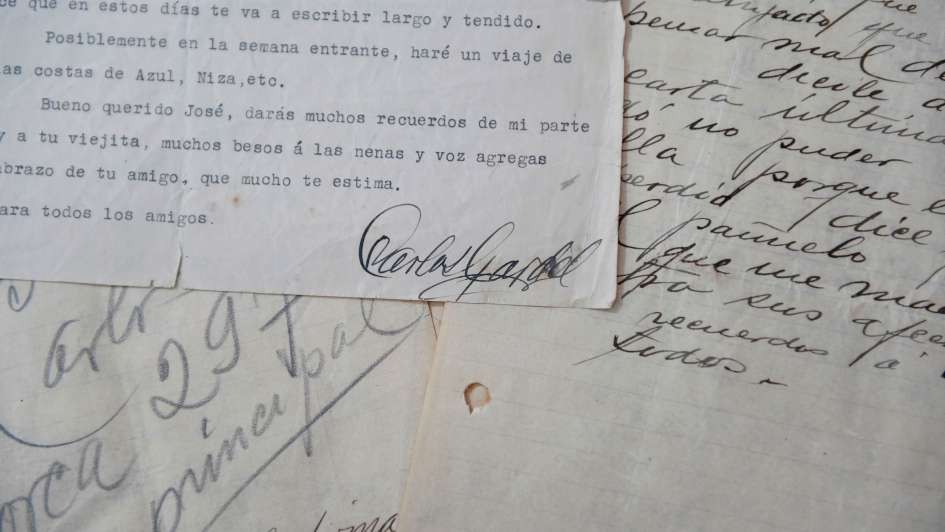 que en estos días te va a escribir largo y tendido.
Posiblemente en la semana entrante, haré un viaje de
as costas de Azul, Niza,etc.
Bueno querido José, darás muchos recuerdos de mi parte
y a tu viejita, muchos besos á las nenas y voz agregas
abrazo de tu amigo, que mucho te estima.
ara todos los amigos.
Carlos Gardel
que
que
pensar mal de
decile a
carta última
no poder
porque
perdió dice
pañuelo
que me
sus
recuerdos a
todos.-
29
principal